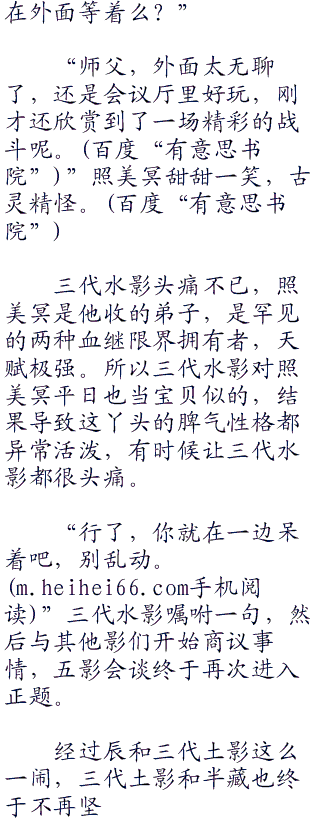 在外面等着么？”
“师父，外面太无聊
了，还是会议厅里好玩，刚
才还欣赏到了一场精彩的战
斗呢。(百度“有意思书
院”)”照美冥甜甜一笑，古
灵精怪。(百度“有意思书
院”)
三代水影头痛不已，照
美冥是他收的弟子，是罕见
的两种血继限界拥有者，天
赋极强。所以三代水影对照
美冥平日也当宝贝似的，结
果导致这丫头的脾气性格都
异常活泼，有时候让三代水
影都很头痛。
“行了，你就在一边呆
着吧，别乱动。
(m.heihei66.com手机阅
读)”三代水影嘱咐一句，然
后与其他影们开始商议事
情，五影会谈终于再次进入
正题。
经过辰和三代土影这么
一闹，三代土影和半藏也终
于不再坚